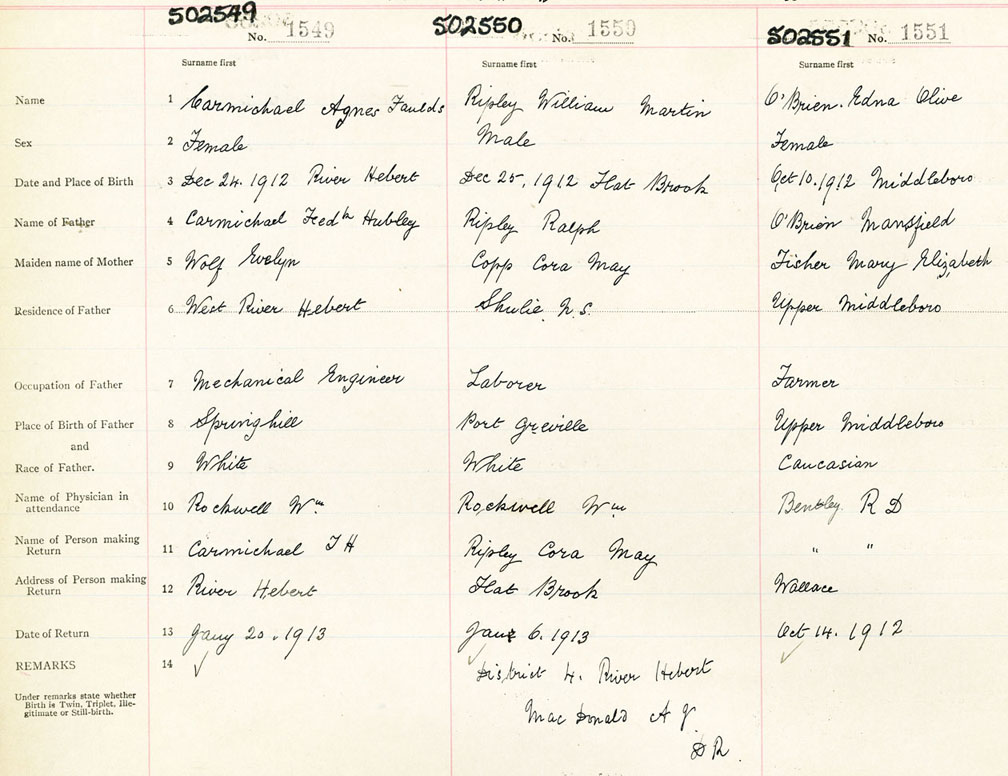 502549 No. 1549 502550 No. 1550 502551 No. 1551
Surname first Surname first Surname first
Name 1 Carmichael Agnes Faulds Ripley William Martin O'Brien. Edna Olive
Sex 2 Female Male Female
Date and Place of Birth 3 Dec 24. 1912 River Hebert Dec 25, 1912 Flat Brook Oct 10. 1912 Middleboro
Name of Father 4 Carmichael Fredk Hubley Ripley Ralph O'Brien Mansfield
Maiden name of Mother 5 Wolf Evelyn Copp Cora May Fisher Mary Elizabeth
Residence of Father 6 West River Hebert Shulie N.S. Upper Middleboro
Occupation of Father 7 Mechanical Engineer Laborer Farmer
Place of Birth of Father 8 Springhill Port Greville Upper Middleboro
and
Race of Father. 9 White White Caucasian
Name of Physician in
attendance 10 Rockwell Wm Rockwell Wm Bentley R D
Name of Person making
Return 11 Carmichael F H Ripley Cora May " "
Address of Person making
Return 12 River Hebert Flat Brook Wallace
Date of Return 13 Jany 20. 1913 6. 1913 Oct 14. 1912
REMARKS 14 ✓ ✓ District 4. River Hebert ✓
Under remarks state whether
Birth is Twin, Triplet, Ille-
gitimate or Still-birth.
MacDonald A J
D R.